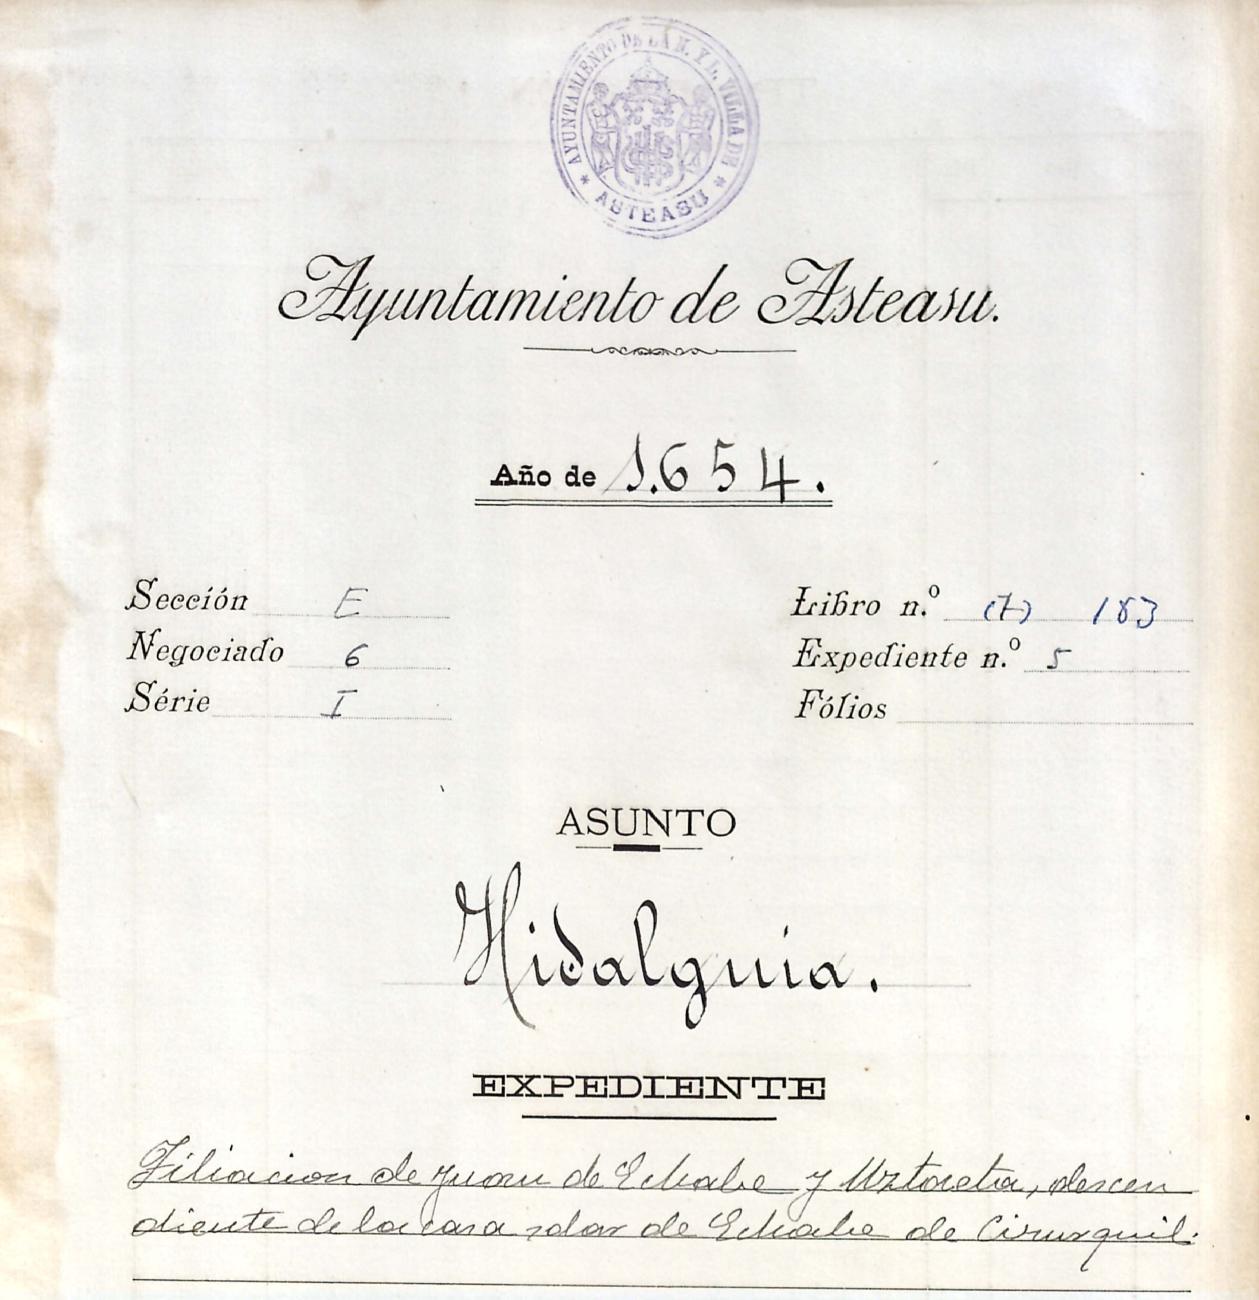 AYUNTAMIENTO DE LA N. Y L. VILLA DE
* ASTEASU *
Ayuntamiento de Asteasu.
Año de 1.654.
Sección E
Negociado 6
Série I
Libro n.º (7) 183
Expediente n.º 5
Fólios
ASUNTO
Hidalguia.
EXPEDIENTE
Filiacion de Juan de Echabe y Uztaeta, descen
diente de la casa solar de Echabe de Cizurquil.